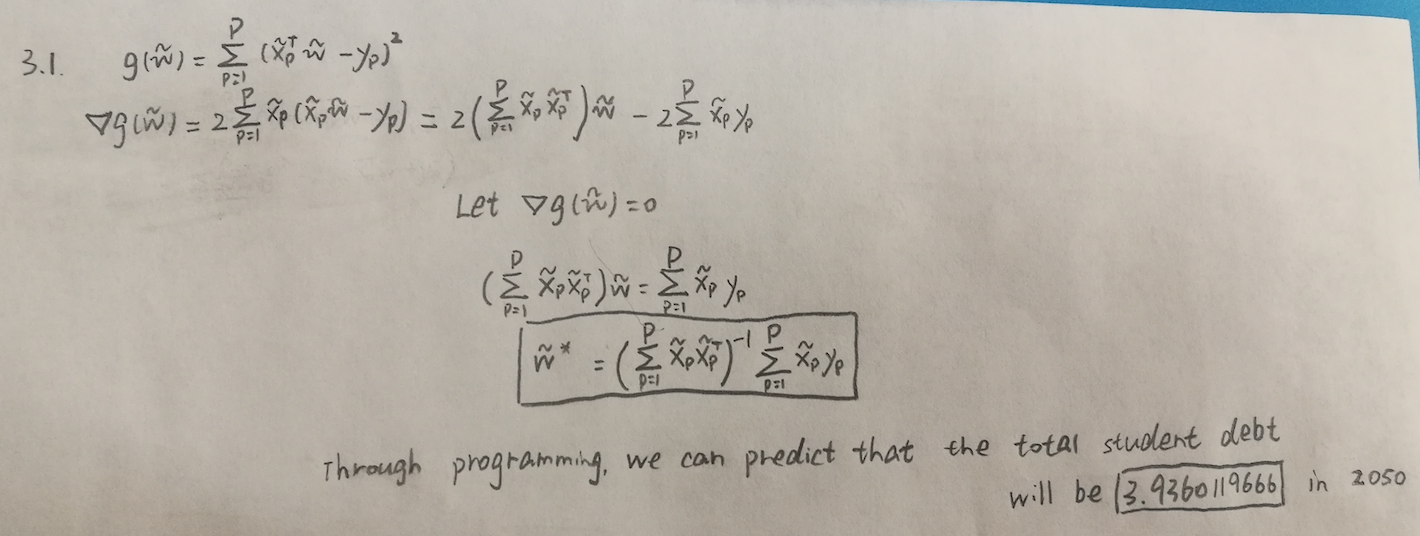 3.1. g(w̃) = Σ_{p=1}^{P} (x̃_p^T w̃ - y_p)^2
∇g(w̃) = 2 Σ_{p=1}^{P} x̃_p (x̃_p w̃ - y_p) = 2 ( Σ_{p=1}^{P} x̃_p x̃_p^T ) w̃ - 2 Σ_{p=1}^{P} x̃_p y_p
Let ∇g(w̃) = 0
( Σ_{p=1}^{P} x̃_p x̃_p^T ) w̃ = Σ_{p=1}^{P} x̃_p y_p
w̃* = ( Σ_{p=1}^{P} x̃_p x̃_p^T )^{-1} Σ_{p=1}^{P} x̃_p y_p
Through programming, we can predict that the total student debt
will be 3.9360119666 in 2050